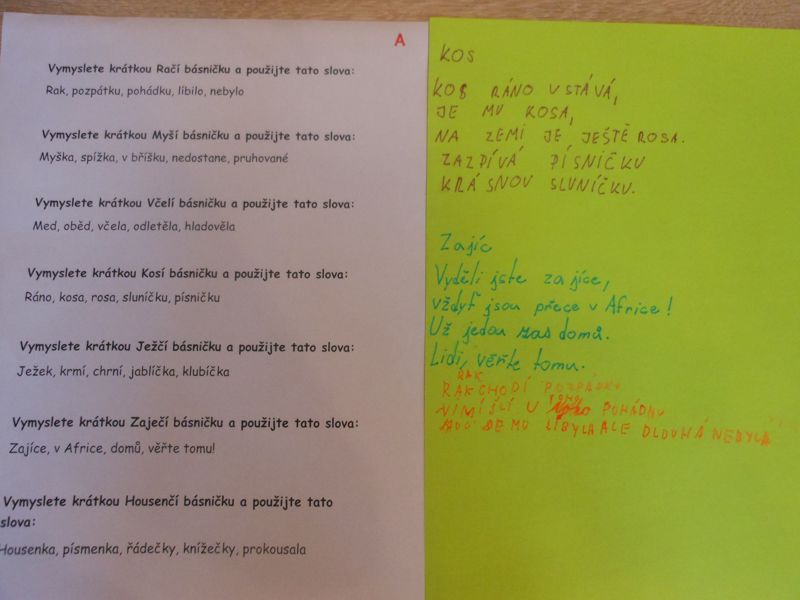 A
Vymyslete krátkou Račí básničku a použijte tato slova:
Rak, pozpátku, pohádku, líbilo, nebylo
Vymyslete krátkou Myší básničku a použijte tato slova:
Myška, spížka, v bříšku, nedostane, pruhované
Vymyslete krátkou Včelí básničku a použijte tato slova:
Med, oběd, včela, odletěla, hladověla
Vymyslete krátkou Kosí básničku a použijte tato slova:
Ráno, kosa, rosa, sluníčku, písničku
Vymyslete krátkou Ježčí básničku a použijte tato slova:
Ježek, krmí, chrní, jablíčka, klubíčka
Vymyslete krátkou Zaječí básničku a použijte tato slova:
Zajíce, v Africe, domů, věřte tomu!
Vymyslete krátkou Housenčí básničku a použijte tato
slova:
Housenka, písmenka, řádečky, knížečky, prokousala
KOS
KOS RÁNO VSTÁVÁ,
JE MU KOSA,
NA ZEMI JE JEŠTĚ ROSA.
ZAZPÍVÁ PÍSNIČKU
KRÁSNOU SLUNÍČKU.
Zajíc
Vyděli jste zajíce,
vždyť jsou přece v Africe!
Už jedou zas domů.
Lidi, věřte tomu.
RAK
RAK CHODÍ POZPÁDKU
POHÁDKU
LÍBYLA ALE DLOUHÁ NEBYLA